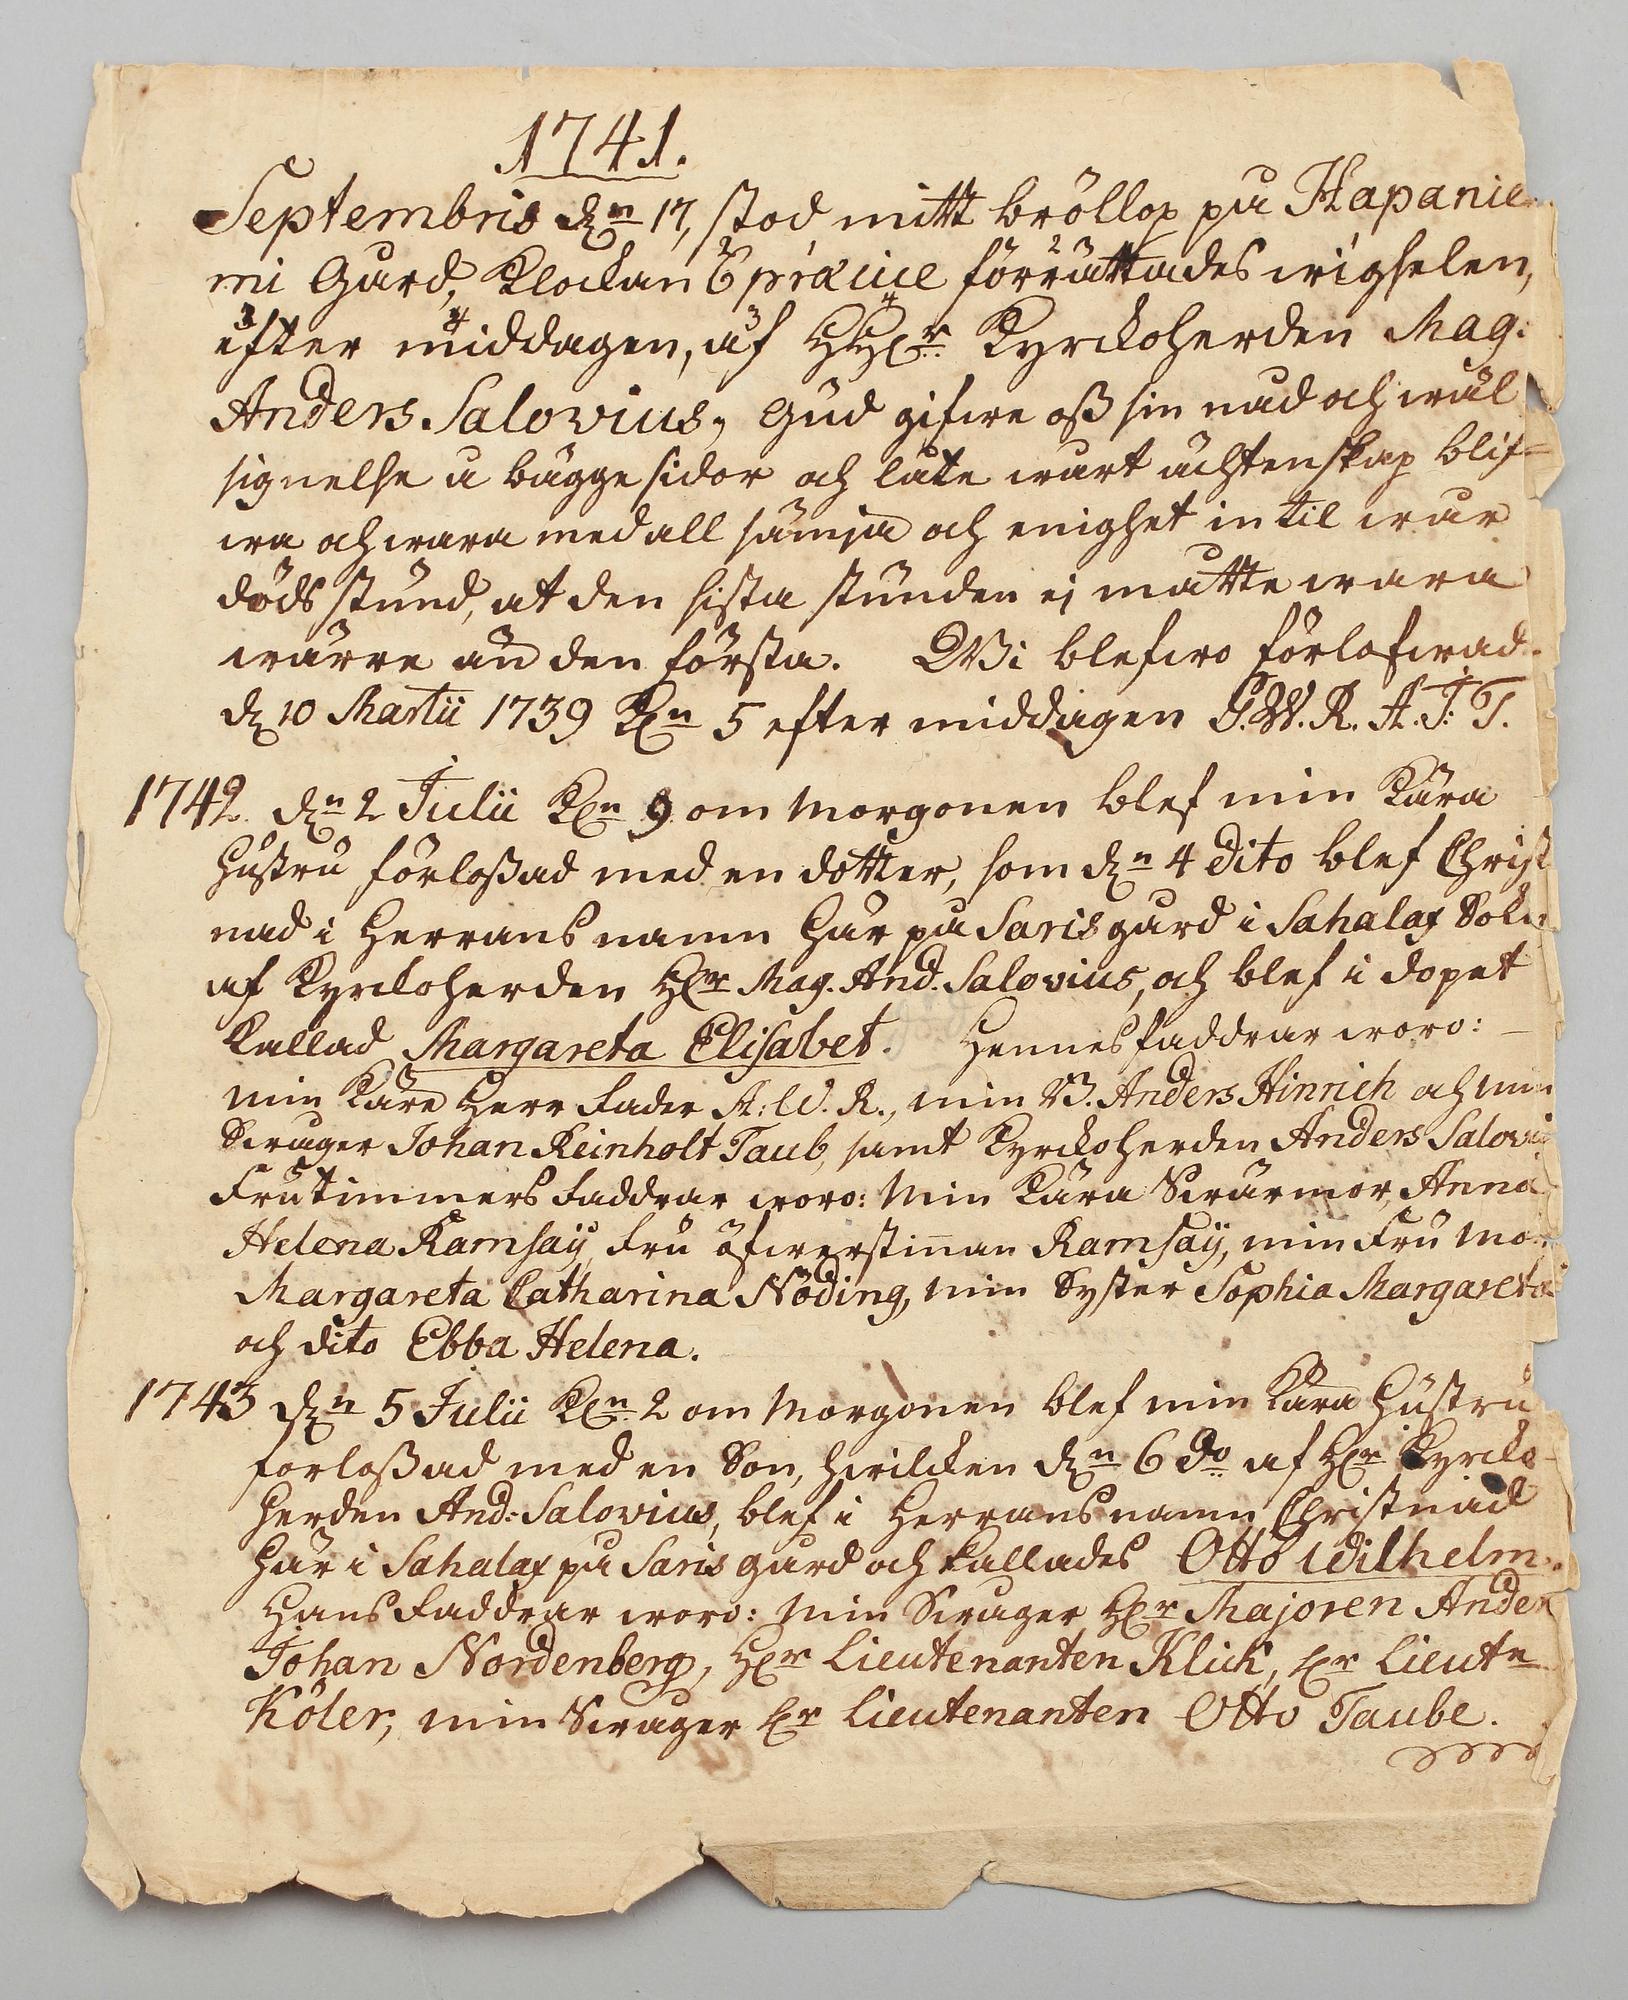 1741.
Septembris d:n 17, stod mitt bröllop på Hapanie
mi Gård, Klockan 6 præcise förrättades wigselen,
efter middagen, af H:r Kyrckoherden Mag:
Anders Salovius, Gud gifwe oß sin nåd och wäl
signelse å bägge sidor och låte wårt ächtenskap blif=
wa och wara med all sämja och enighet in til wår
döds stund, at den sista stunden ej måtte wara
wärre än den första. Wi blefwo förlofwad
d 10 Martii 1739 Kl:n 5 efter middagen G.W.R. A.J:T.
1742. d:n 2 Julii Kl:n 9 om morgonen blef min Kära
Hustru förloßad med en dotter, som d:n 4 dito blef Christ
nad i Herrans namn här på Saris gård i Sahalax Sokn
af Kyrckoherden H:r Mag. And. Salovius, och blef i dopet
Kallad Margareta Elisabet. Hennes faddrar woro:
min Käre Herr Fader A:W.R., min B. Anders Hinrich och min
Swåger Johan Reinholt Taub, samt Kyrckoherden Anders Salovi
Frutimmers Faddrar woro: Min Kära Swärmor, Anna
Helena Ramsaÿ, Fru öfwerstinnan Ramsaÿ, min Fru mo
Margareta Catharina Nöding, min Syster Sophia Margareta
och dito Ebba Helena.
1743 d:n 5 Julii Kl:n 2 om Morgonen blef min Kära Hustru
förloßad med en Son, hwilcken d:n 6 do af H:r Kyrcko-
herden And: Salovius, blef i Herrans namn Christnad
här i Sahalax på Saris gård och kallades Otto Wilhelm.
Hans Faddrar woro: min Swåger H:r Majoren Ander
Johan Nordenberg, H:r Lieutenanten Klick, H:r Lieutn
Köler, min Swåger H:r Lieutenanten Otto Taube.